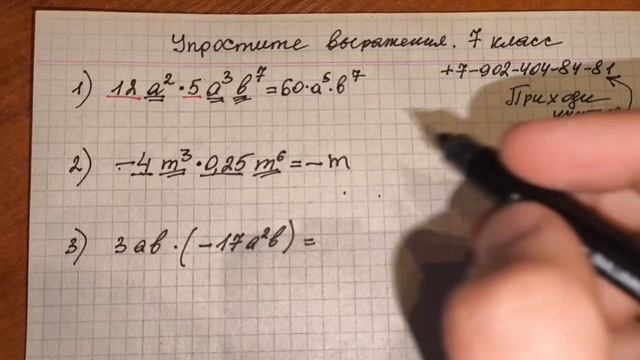 Упростите выражения. 7 класс
+7-902-404-84-81
Приходи
1) 12 a² · 5 a³ b⁷ = 60 · a⁵ · b⁷
2) -4 m³ · 0,25 m⁶ = - m
3) 3ab · (-17a²b) =